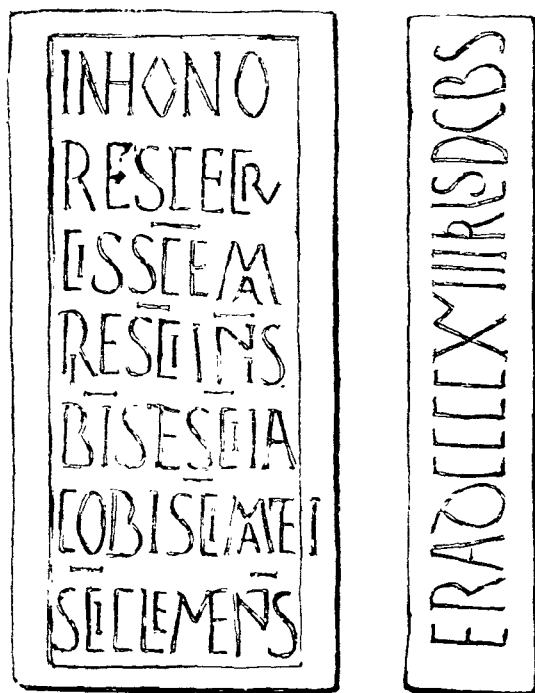 INHONO
RESCECRV
CISSCEMA
RESCIINS
BISESCIIA
COBISCIMATEI
SCICLEMENS
ERADCCCCXVIIIKLSDCBS